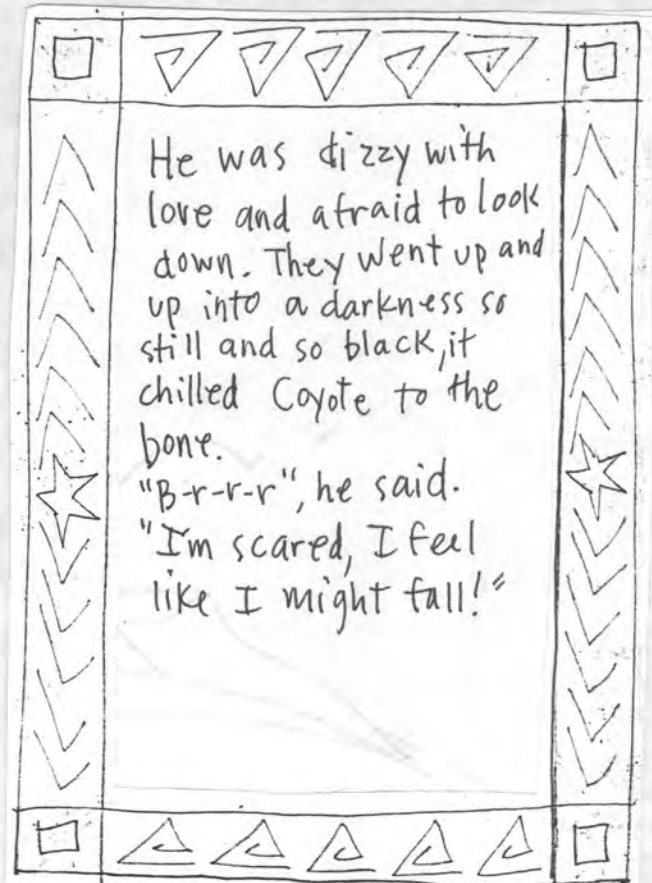 He was dizzy with
love and afraid to look
down. They went up and
up into a darkness so
still and so black, it
chilled Coyote to the
bone.
"B-r-r-r", he said.
"I'm scared, I feel
like I might fall!"